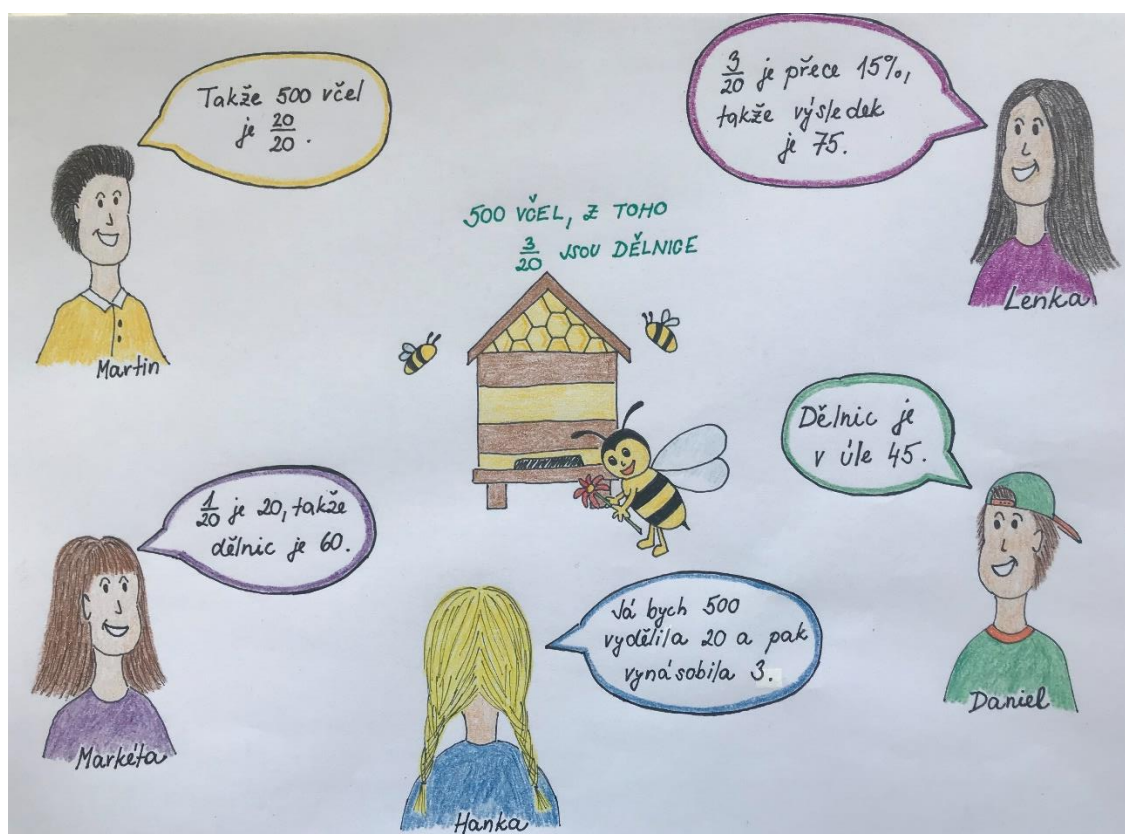 Takže 500 včel
je 20/20.
Martin
3/20 je přece 15%,
takže výsledek
je 75.
Lenka
500 VČEL, Z TOHO
3/20 JSOU DĚLNICE
Dělnic je
v úle 45.
Daniel
1/20 je 20, takže
dělnic je 60.
Markéta
Já bych 500
vydělila 20 a pak
vynásobila 3.
Hanka